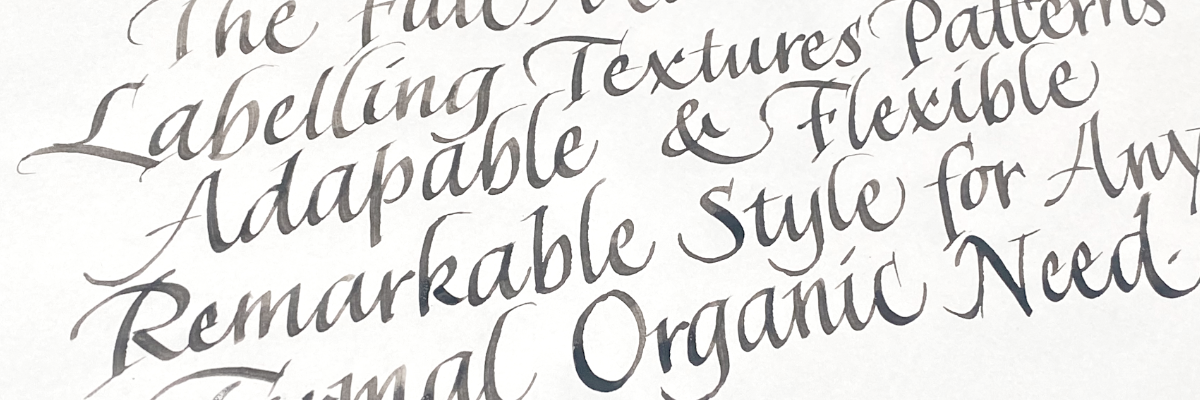 The
Labelling Textures Patterns
Adapable & Flexible
Remarkable Style for Any
Organic Need.